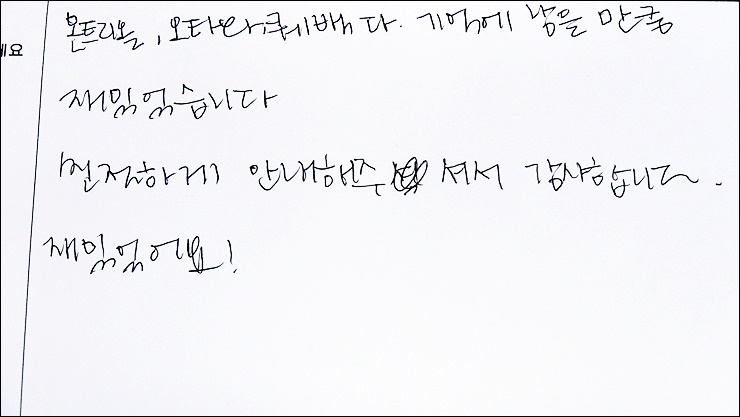 몬트리올, 오타와, 퀘백 다. 기억에 남을 만큼
세요
재밌었습니다
친절하게 안내해주 셔서 감사합니다.
재밌었어요!